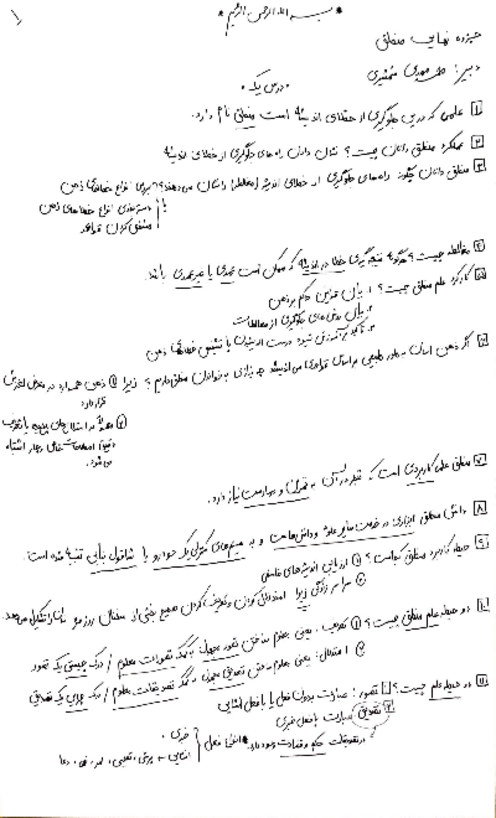 * بسم الله الرحمن الرحیم *
۱
جزوه نهایی منطق
دبیر: شمشیری
• درس یک •
۱ علمی که درپی جلوگیری از خطای اندیشه است منطق نام دارد.
۲ عملکرد منطق دانان چیست؟ نشان دادن راه های جلوگیری از خطای اندیشه
۳ منطق دانان چگونه راه های جلوگیری از خطای اندیشه (مغالطه) را نشان می دهند؟ بررسی انواع خطاهای ذهن
با دسته بندی انواع خطاهای ذهن
مشخص کردن قواعد
۴ مغالطه چیست؟ هرگونه نتیجه گیری خطا در اندیشه که ممکن است عمدی یا غیرعمدی باشد.
۵ کارکرد علم منطق چیست؟ ۱. بیان قوانین حاکم بر ذهن
۲. بیان روش های جلوگیری از مغالطات
۳. تأکید بر آموزش شیوه درست اندیشیدن یا تشخیص خطاهای ذهن
۶ اگر ذهن انسان به طور طبیعی بر اساس قواعدی می اندیشد چه نیازی به خواندن منطق داریم؟ زیرا ۱ ذهن همواره در معرض لغزش
قرار دارد
۲ در استدلال های پیچیده یا تعریف
دقیق اصطلاحات خاص دچار اشتباه
می شود.
۷ منطق علمی کاربردی است که تبحر در آن به تمرین و ممارست نیاز دارد.
۸ دانش منطق ابزاری در خدمت سایر علوم و دانش هاست و به سیستم های کنترلی یک خودرو یا شاقول بنایی تشبیه شده است.
۹ حیطه کاربرد منطق کجاست؟ ۱ ارزیابی اندیشه های فلسفی
۲ سراسر زندگی زیرا استدلال کردن و تعریف کردن صحیح بخشی از مسائل روزمره ما را تشکیل می دهد
۱۰ دو حیطه علم منطق چیست؟ ۱ تعریف: یعنی معلوم ساختن تصور مجهول به کمک تصورات معلوم / درک چیستی یک تصور
۲ استدلال: یعنی معلوم ساختن تصدیق مجهول به کمک تصدیقات معلوم / درک چرایی یک تصدیق
۱۱ دو حیطه علم چیست؟ ۱ تصور: عبارت بدون فعل یا با فعل انشایی
۲ تصدیق: عبارت با فعل خبری
در تصدیقات حکم و قضاوت وجود دارد. * انواع فعل خبری.
انشایی ← پرسشی، تعجبی، امر، نهی، دعا